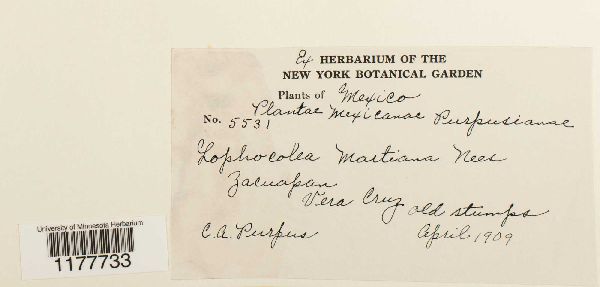 Ex HERBARIUM OF THE
NEW YORK BOTANICAL GARDEN
Plants of Mexico
Plantae Mexicanae Purpusianae
No. 5531
Lophocolea Martiana Nees
Zacuapan
Vera Cruz old stumps
C. A. Purpus April 1909
University of Minnesota Herbarium
1177733